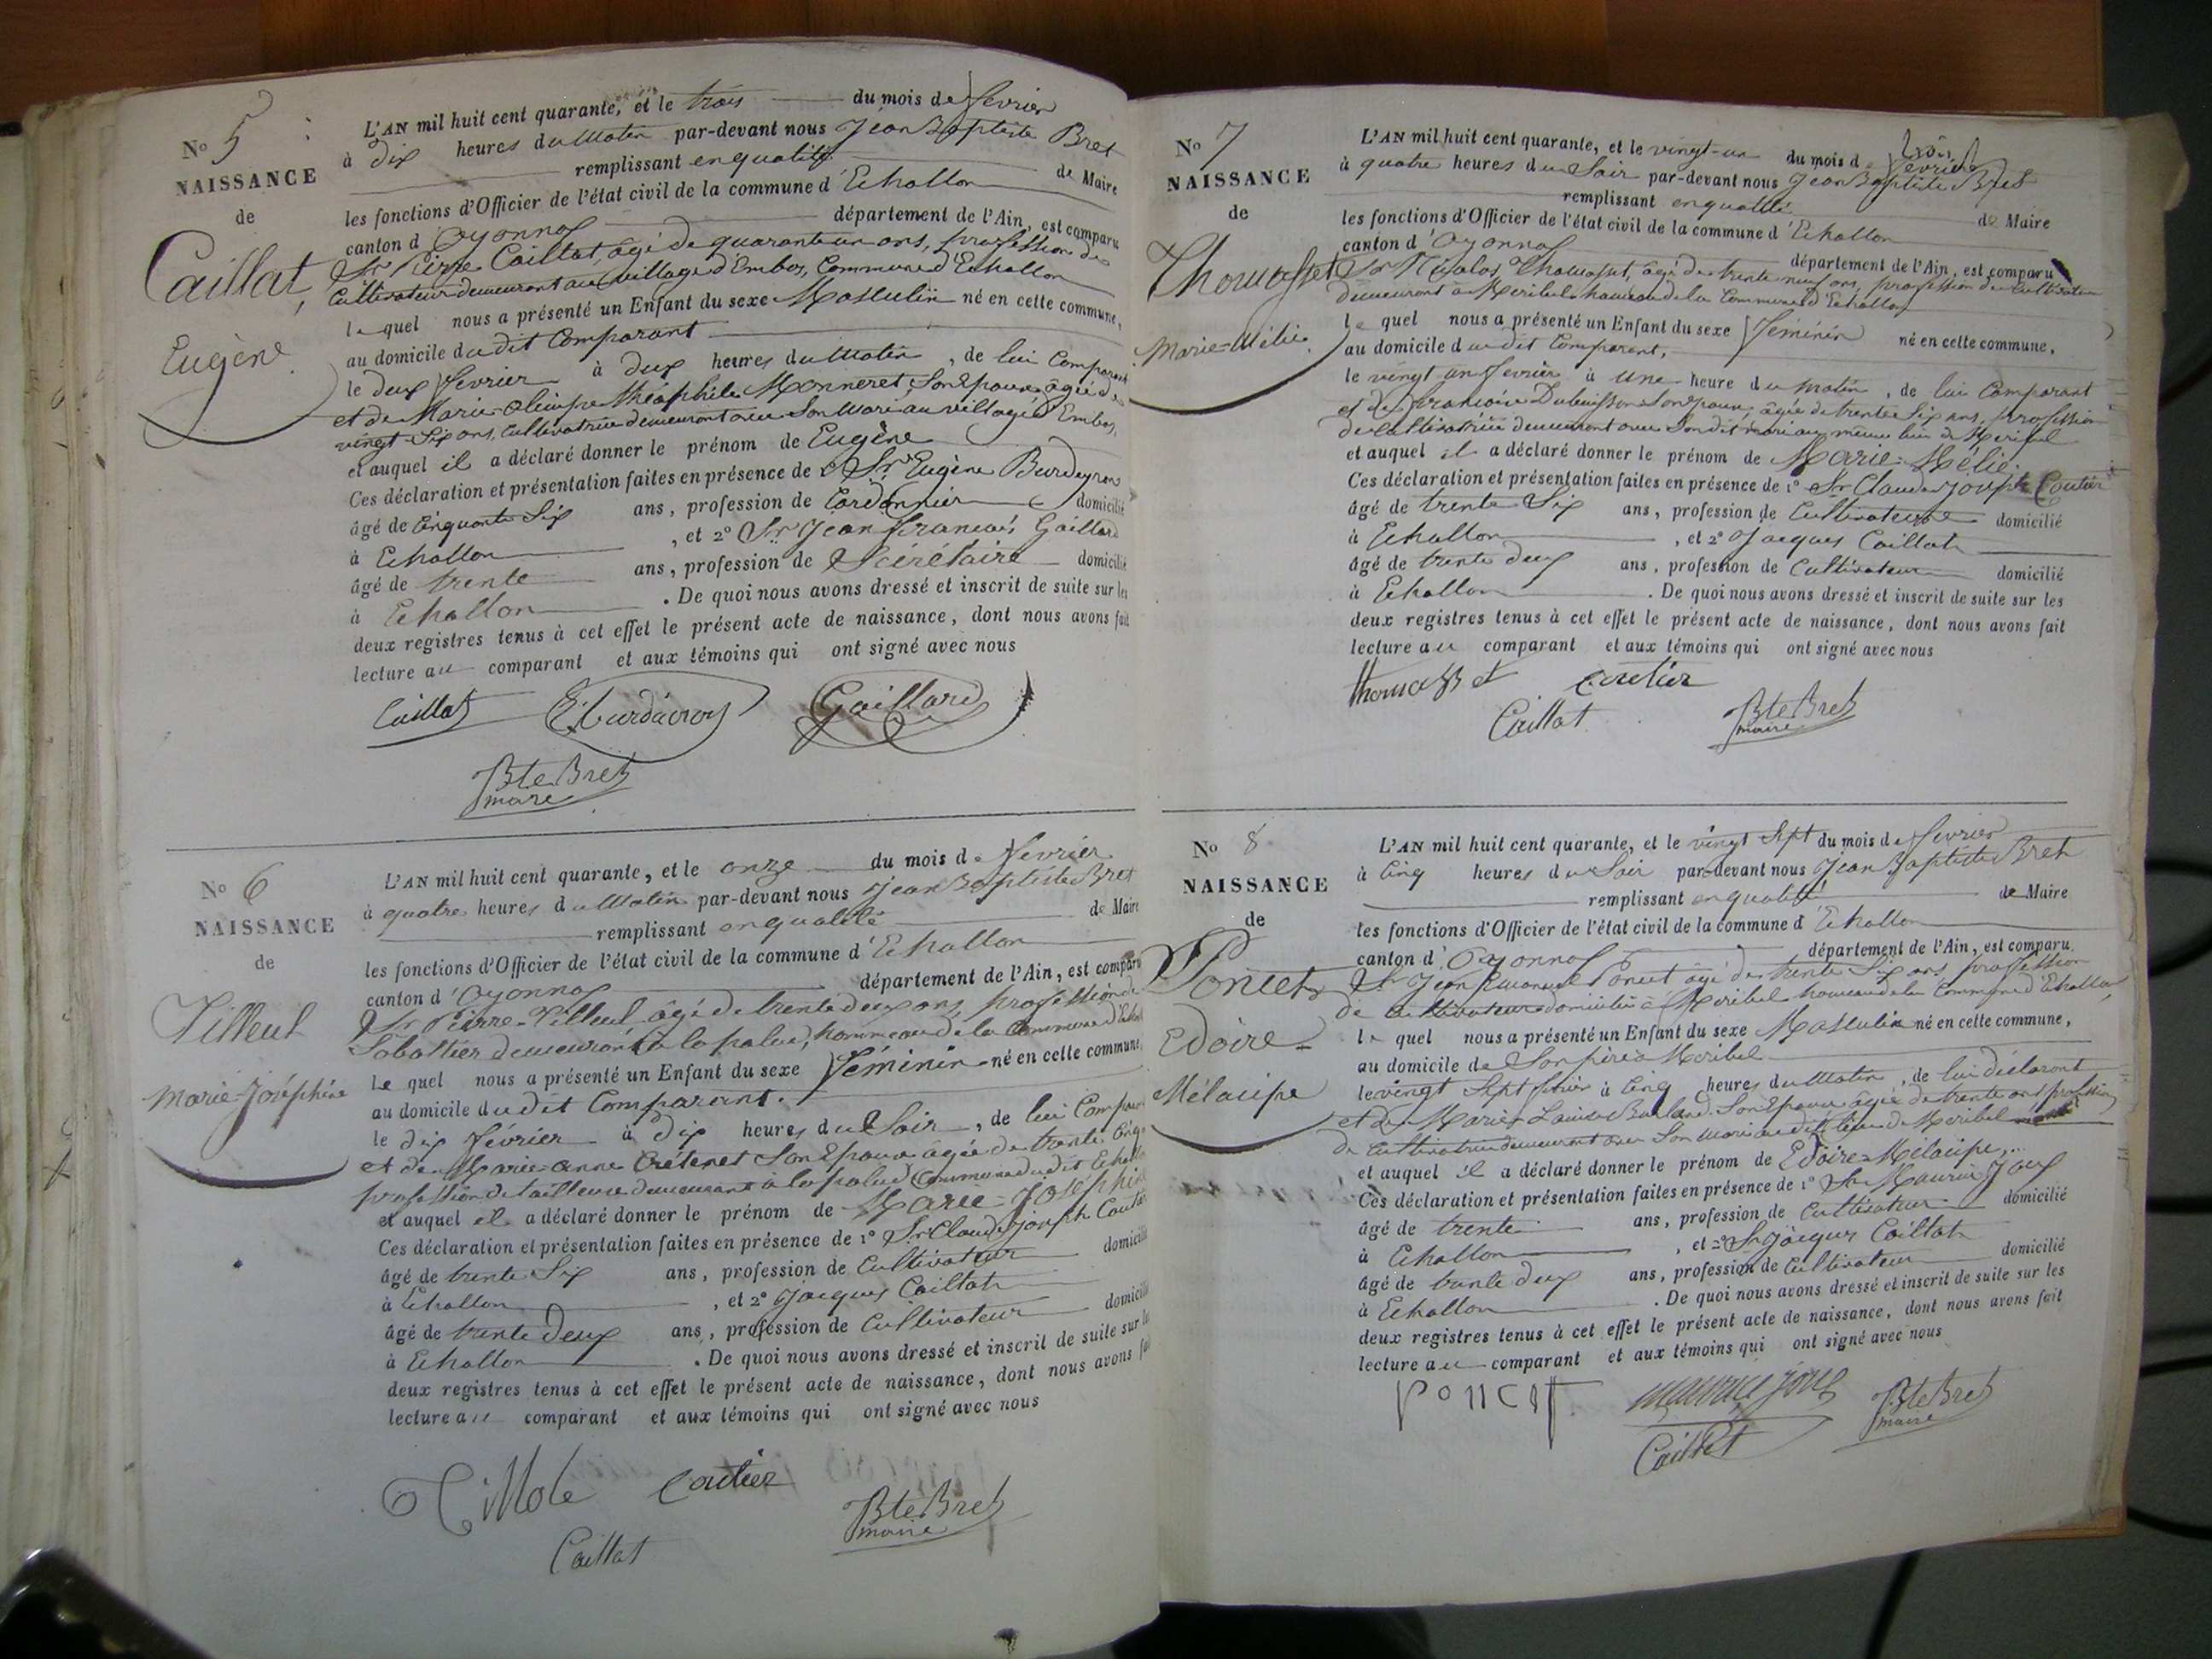 N° 5
NAISSANCE
de
Caillat,
Eugène.
L'AN mil huit cent quarante, et le trois du mois de février
à dix heures du Matin par-devant nous Jean Baptiste Bret
remplissant en qualité de Maire
les fonctions d'Officier de l'état civil de la commune d'Echallon
canton d'Oyonnax département de l'Ain, est comparu
Sr. Pierre Caillat, âgé de quarante un ans, profession de
Cultivateur demeurant au village d'Embos, Commune d'Echallon
le quel nous a présenté un Enfant du sexe Masculin né en cette commune,
au domicile du dit Comparant
le deux février à deux heures du Matin, de lui Comparant
et de Marie Olimpe Théophile Monneret, son Epouse âgée de
vingt Six ans, Cultivatrice demeurant avec Son Mari au village d'Embos,
et auquel il a déclaré donner le prénom de Eugène
Ces déclaration et présentation faites en présence de 1° Sr. Eugène Burdeyron
âgé de Cinquante Six ans, profession de Cordonnier domicilié
à Echallon, et 2° Sr. Jean francois Gaillard
âgé de trente ans, profession de Sécrétaire domicilié
à Echallon. De quoi nous avons dressé et inscrit de suite sur les
deux registres tenus à cet effet le présent acte de naissance, dont nous avons fait
lecture au comparant et aux témoins qui ont signé avec nous
Caillat Gaillard
Bte Bret
maire
N° 6
NAISSANCE
de
Tilleul
Marie-Joséphine
L'AN mil huit cent quarante, et le onze du mois de février
à quatre heures du Matin par-devant nous Jean Baptiste Bret
remplissant en qualité de Maire
les fonctions d'Officier de l'état civil de la commune d'Echallon
canton d'Oyonnax département de l'Ain, est comparu
Sr. Pierre Tilleul, âgé de trente deux ans, profession de
Sabottier demeurant à la palud, hameau de la Commune d'Echallon
le quel nous a présenté un Enfant du sexe Féminin né en cette commune,
au domicile du dit Comparant.
le dix février à dix heures du Soir, de lui Comparant
et de Marie-anne Crétenet Son Epouse âgée de trente Cinq
profession de tailleuse demeurant à la palud Commune du dit Echallon
et auquel il a déclaré donner le prénom de Marie-Joséphine
Ces déclaration et présentation faites en présence de 1° Sr. Claude joseph Coutier
âgé de trente Six ans, profession de Cultivateur domicilié
à Echallon, et 2° Jacques Caillat
âgé de trente deux ans, profession de Cultivateur domicilié
à Echallon. De quoi nous avons dressé et inscrit de suite sur les
deux registres tenus à cet effet le présent acte de naissance, dont nous avons fait
lecture au comparant et aux témoins qui ont signé avec nous
Coutier
Caillat
Bte Bret
maire
N° 7
NAISSANCE
de
Thomasset
Marie-Mélie.
L'AN mil huit cent quarante, et le vingt-un du mois de février
à quatre heures du Soir par-devant nous Jean Baptiste Bret
remplissant en qualité de Maire
les fonctions d'Officier de l'état civil de la commune d'Echallon
canton d'Oyonnax département de l'Ain, est comparu
Sr. Nicolas Thomasset, âgé de trente neuf ans, profession de Cultivateur
demeurant à Meribel hameau de la Commune d'Echallon
le quel nous a présenté un Enfant du sexe féminin né en cette commune,
au domicile du dit Comparant,
le vingt un février à une heure du matin, de lui Comparant
et de francoise Dubuisson Son Epouse, âgée de trente Six ans, profession
de Cultivatrice demeurant avec Son dit mari au même lieu de Meribel
et auquel il a déclaré donner le prénom de Marie-Mélie.
Ces déclaration et présentation faites en présence de 1° Sr. Claude Joseph Coutier
âgé de trente Six ans, profession de Cultivateur domicilié
à Echallon, et 2° Jacques Caillat
âgé de trente deux ans, profession de Cultivateur domicilié
à Echallon. De quoi nous avons dressé et inscrit de suite sur les
deux registres tenus à cet effet le présent acte de naissance, dont nous avons fait
lecture au comparant et aux témoins qui ont signé avec nous
thomasset Coutier
Caillat Bte Bret
maire
N° 8
NAISSANCE
de
Poncet
Edoire-
Mélaipe
L'AN mil huit cent quarante, et le vingt Sept du mois de février
à Cinq heures du Soir par-devant nous Jean Baptiste Bret
remplissant en qualité de Maire
les fonctions d'Officier de l'état civil de la commune d'Echallon
canton d'Oyonnax département de l'Ain, est comparu,
Sr. Jean Emanuel Poncet âgé de trente Six ans profession
de Cultivateur domicilié à Meribel hameau de la Commune d'Echallon,
le quel nous a présenté un Enfant du sexe Masculin né en cette commune,
au domicile de Son père à Meribel
le vingt Sept février à Cinq heures du Matin, de lui déclarant
et de Marie Louise Son Epouse âgée de trente ans profession
de Cultivatrice demeurant avec Son mari au dit lieu de Meribel
et auquel il a déclaré donner le prénom de Edoire-Mélaipe,
Ces déclaration et présentation faites en présence de 1° Sr. Maurice Joux
âgé de trente ans, profession de Cultivateur domicilié
à Echallon, et 2° Sr. Jacques Caillat
âgé de trente deux ans, profession de Cultivateur domicilié
à Echallon. De quoi nous avons dressé et inscrit de suite sur les
deux registres tenus à cet effet le présent acte de naissance, dont nous avons fait
lecture au comparant et aux témoins qui ont signé avec nous
Poncet maurice joux Bte Bret
Caillat maire